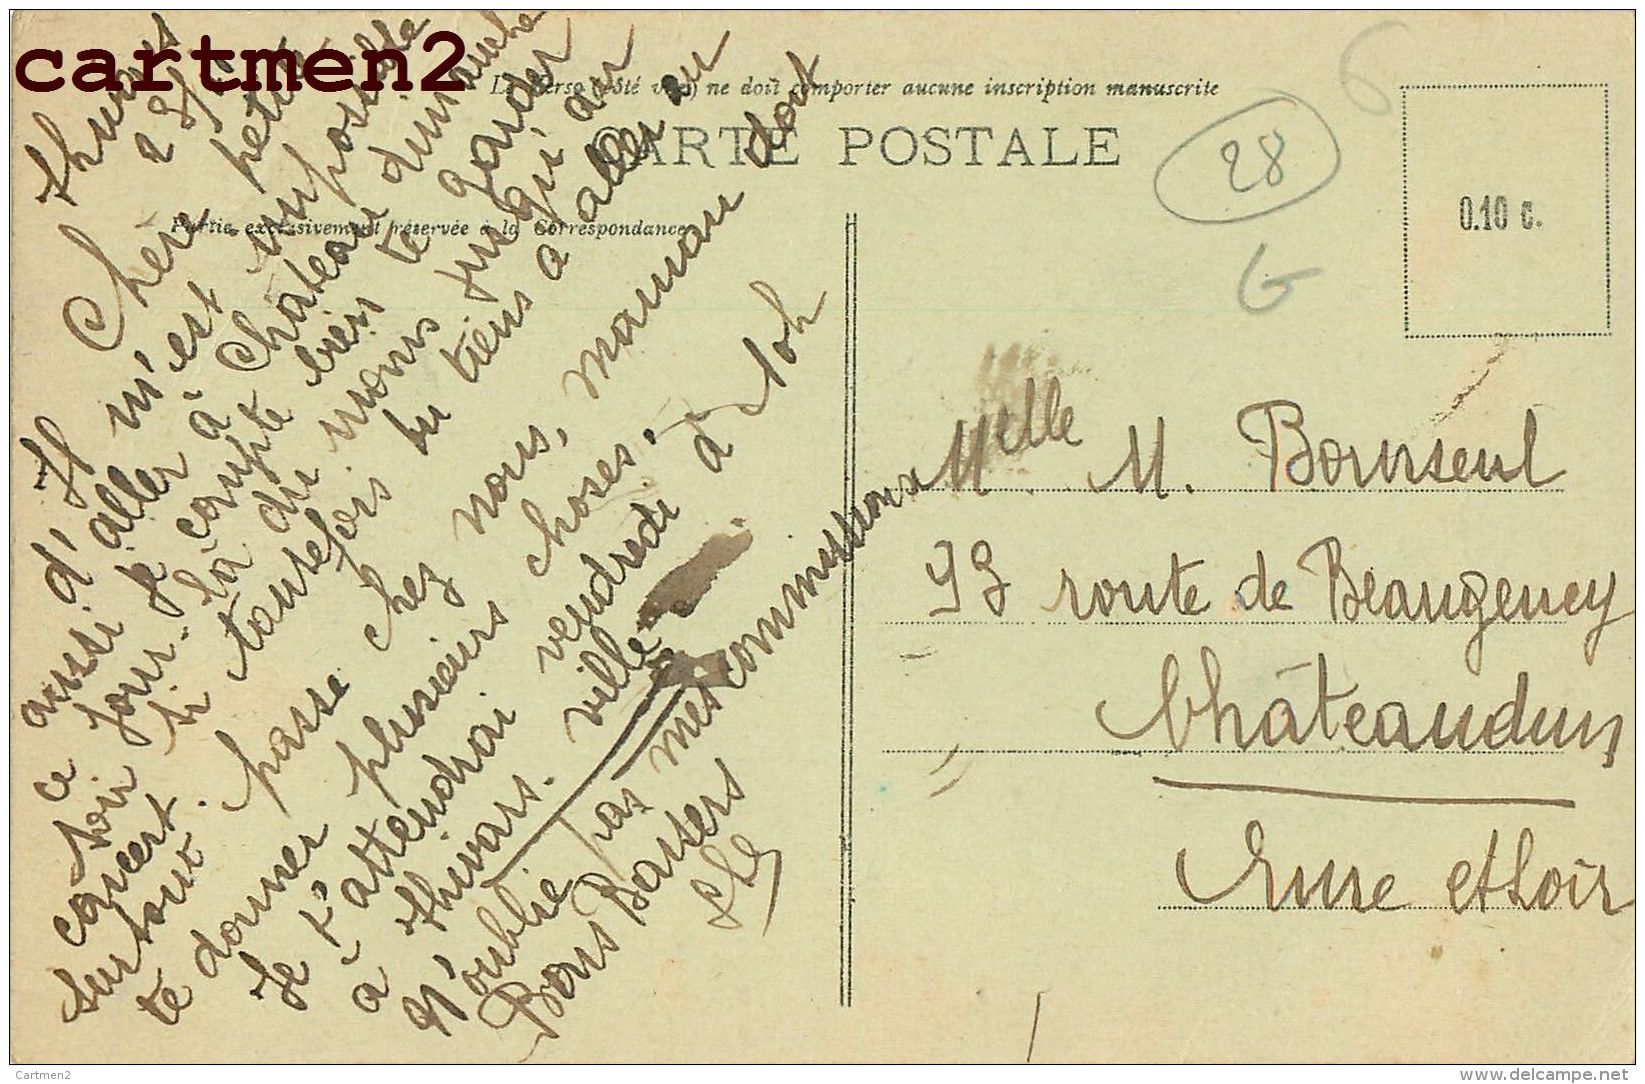 cartmen2
Le Verso (côté vue) ne doit comporter aucune inscription manuscrite
CARTE POSTALE
Partie exclusivement réservée à la Correspondance
28
G
0.10 c.
Thivars
28/
Chère petite
Il m'est impossible
d'aller à Châteaudun dimanche
aussi je compte bien te garder
ce jour-là du moins jusqu'au
soir si toutefois tu tiens à aller au
concert
surtout. passe chez nous, maman doit
te donner plusieurs choses.
Je t'attendrai vendredi à 10h
à Thivars. ville
N'oublie pas mes commissions
Bons Baisers
Melle M. Bourseul
93 route de Beaugency
Châteaudun
Eure et Loir
Cartmen2
delcampe.net